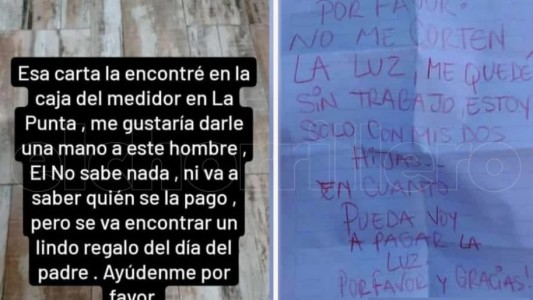 Esa carta la encontré en la
caja del medidor en La
Punta , me gustaría darle
una mano a este hombre ,
El No sabe nada , ni va a
saber quién se la pago ,
pero se va encontrar un
lindo regalo del día del
padre . Ayúdenme por
favor
POR FAVOR.
NO ME CORTEN
LA LUZ, ME QUEDÉ
SIN TRABAJO, ESTOY
SOLO CON MIS DOS
HIJAS...
EN CUANTO
PUEDA VOY
A PAGAR LA
LUZ
POR FAVOR Y GRACIAS!
elchorrillero